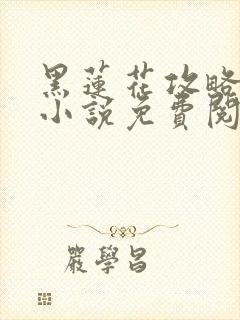 黑蓮花攻略
小說免費閱
嚴學昌